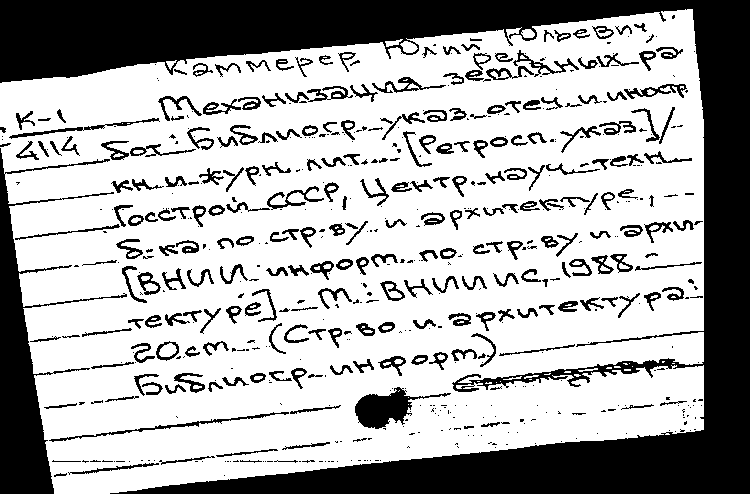 Каммерер, Юлий Юльевич,
ред.
К-1 Механизация земляных ра-
4114 бот: Библиогр. указ. отеч. и иностр.
кн. и журн. лит. ...: [Ретросп. указ.] /
Госстрой СССР, Центр. науч.-техн.
б-ка по стр-ву и архитектуре,
[ВНИИ информ. по стр-ву и архи-
тектуре]. - М.: ВНИИИС, 1988. -
20 см. - (Стр-во и архитектура:
Библиогр. информ.)
См. след. карт.